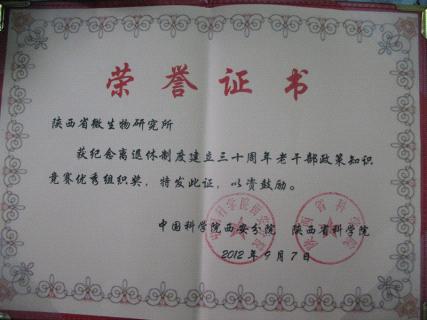 荣誉证书
陕西省微生物研究所
获纪念离退休制度建立三十周年老干部政策知识
竞赛优秀组织奖，特发此证，以资鼓励。
中国科学院西安分院 陕西省科学院
2012年9月7日